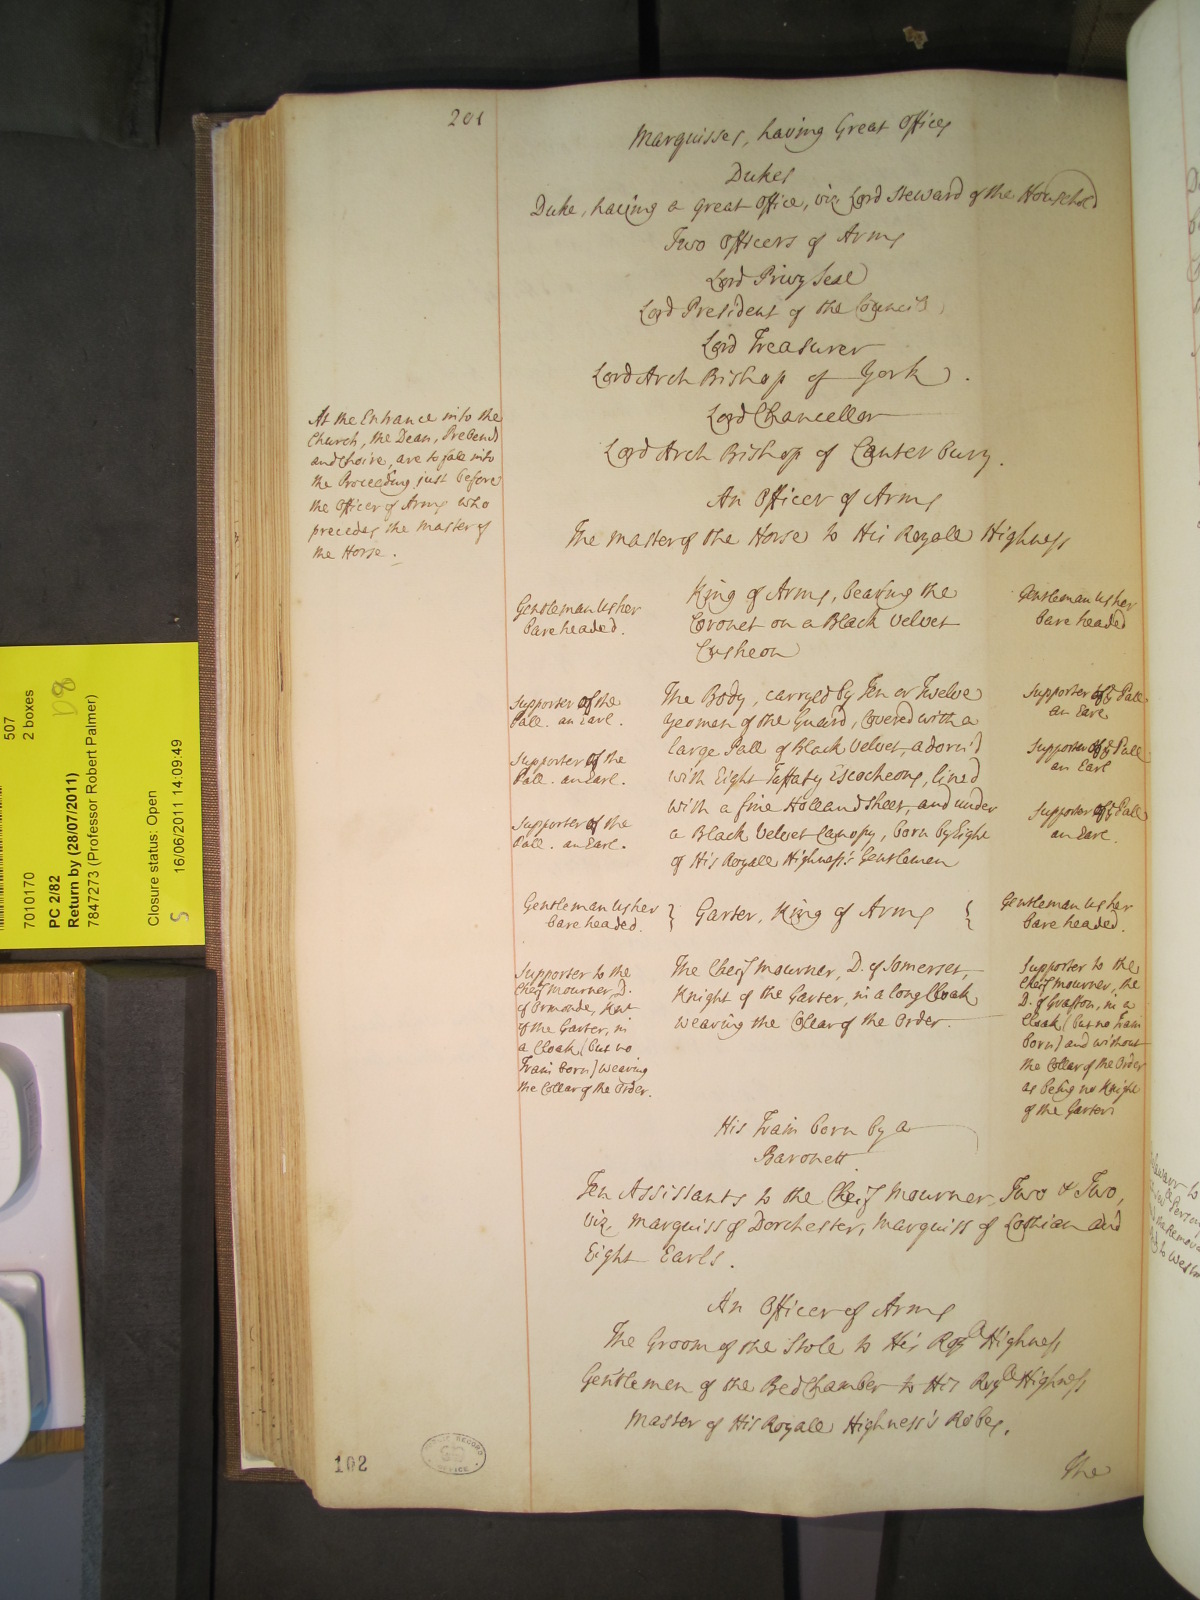 201
Marquisses, having Great Offices
Dukes
Duke, having a Great Office, viz Lord Steward of the Houshold
Two Officers of Arms
Lord Privy Seal
Lord President of the Council
Lord Treasurer
Lord Arch Bishop of York.
Lord Chancellor
Lord Arch Bishop of Canterbury.
An Officer of Arms
The Master of the Horse to His Royall Highness
At the Entrance into the
Church, the Dean, Prebends
and Choire, are to fall into
the Proceeding just before
the Officer of Arms who
precedes the Master of
the Horse.
Gentleman Usher
bare headed.
King of Arms, bearing the
Coronet on a Black Velvet
Cusheon
Gentleman Usher
bare headed
Supporter of the
Pall. an Earl.
Supporter of the
Pall. an Earl.
Supporter of the
Pall. an Earl.
The Body, carryed by Ten or Twelve
Yeomen of the Guard, Covered with a
large Pall of Black Velvet, adorn'd
with Eight Taffaty Escocheons, lined
with a fine Holland Sheet, and under
a Black Velvet Canopy, born by Eight
of His Royall Highness's Gentlemen
Supporter of ye Pall
an Earl
Supporter of ye Pall
an Earl
Supporter of ye Pall
an Earl.
Gentleman Usher
bare headed.
Garter, King of Arms
Gentleman Usher
bare headed.
Supporter to the
Cheif Mourner, D.
of Ormonde, Knt
of the Garter, in
a Cloak (but no
Train born) wearing
the Collar of the Order.
The Cheif Mourner, D. of Somerset,
Knight of the Garter, in a long Cloak
wearing the Collar of the Order.
Supporter to the
Cheif Mourner, the
D. of Grafton, in a
Cloak (but no Train
born) and without
the Collar of the Order
as being no Knight
of the Garter
His Train born by a
Baronett.
Ten Assistants to the Cheif Mourner, Two & Two,
viz. Marquiss of Dorchester, Marquiss of Lothian and
Eight Earls.
An Officer of Arms
The Groom of the Stole to His Royll Highness
Gentlemen of the Bed Chamber to His Royll Highness
Master of His Royall Highness's Robes.
The
102
507
2 boxes
D8
7010170
PC 2/82
Return by (28/07/2011)
7847273 (Professor Robert Palmer)
Closure status: Open
S
16/06/2011 14:09:49